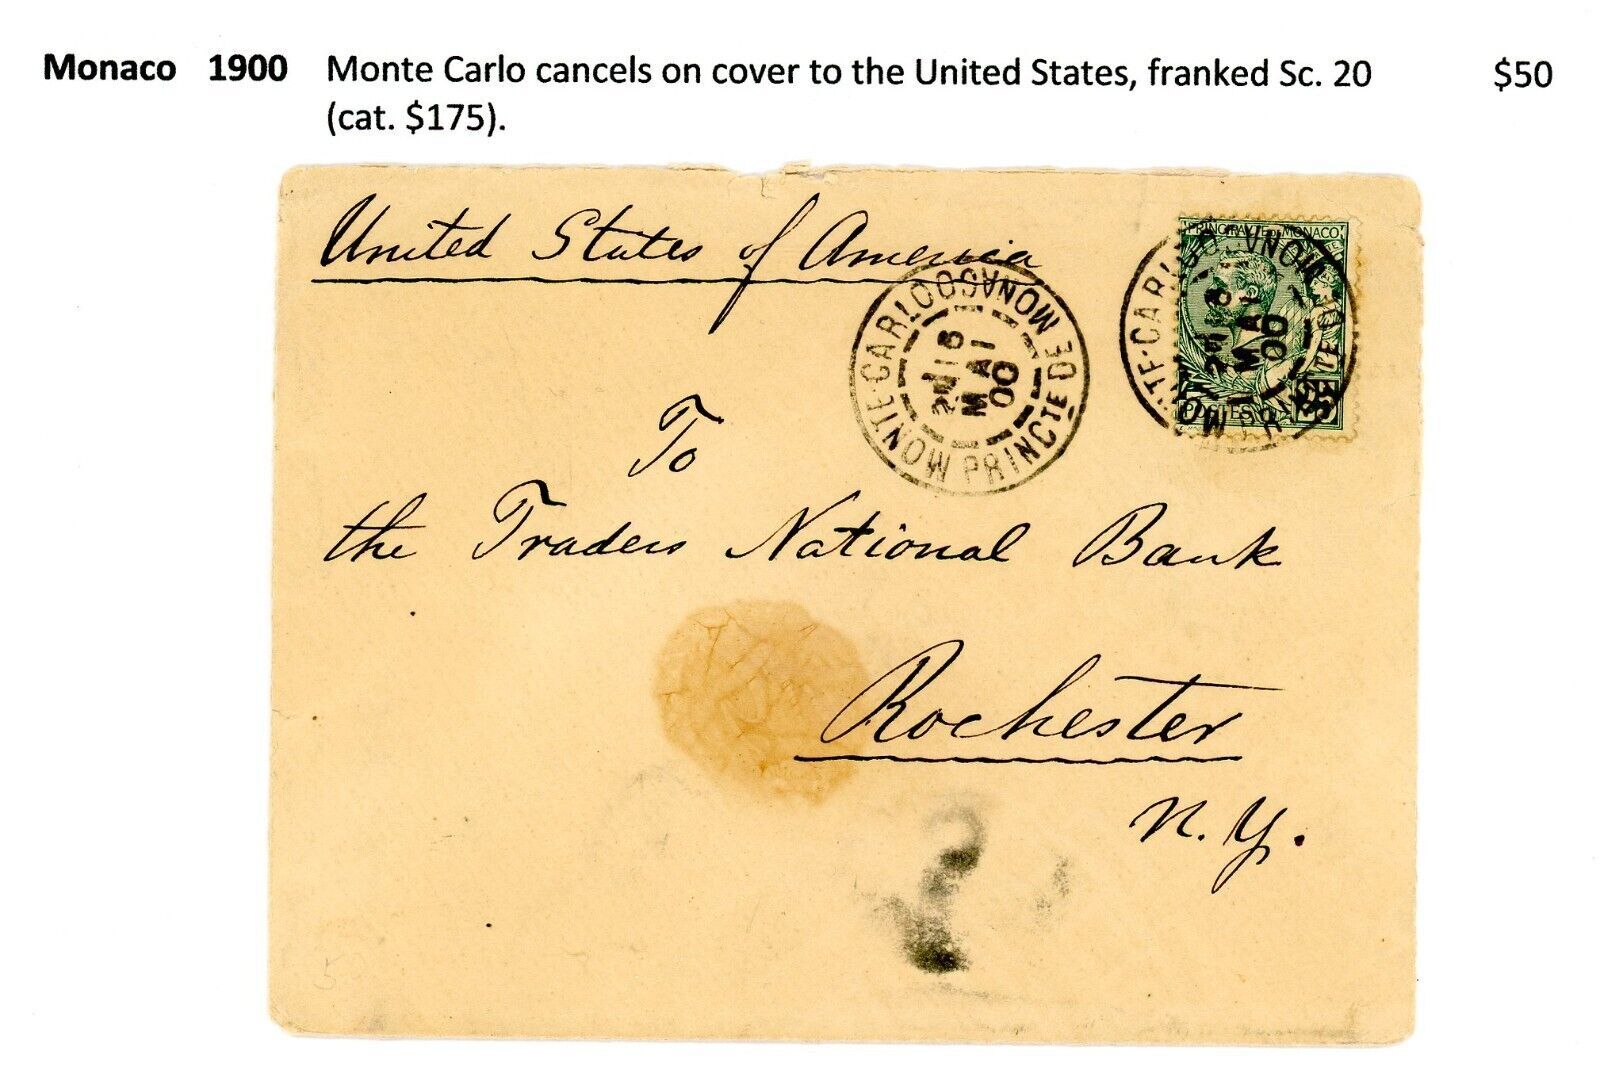 Monaco 1900 Monte Carlo cancels on cover to the United States, franked Sc. 20 $50
(cat. $175).
United States of America
PRINCIPAUTÉ DE MONACO
POSTES
MONTE-CARLO MONACO
PRINCTE DE
16
MAI
00
MONTE-CARLO
MAI
00
To
the Traders National Bank
Rochester
N. Y.
5